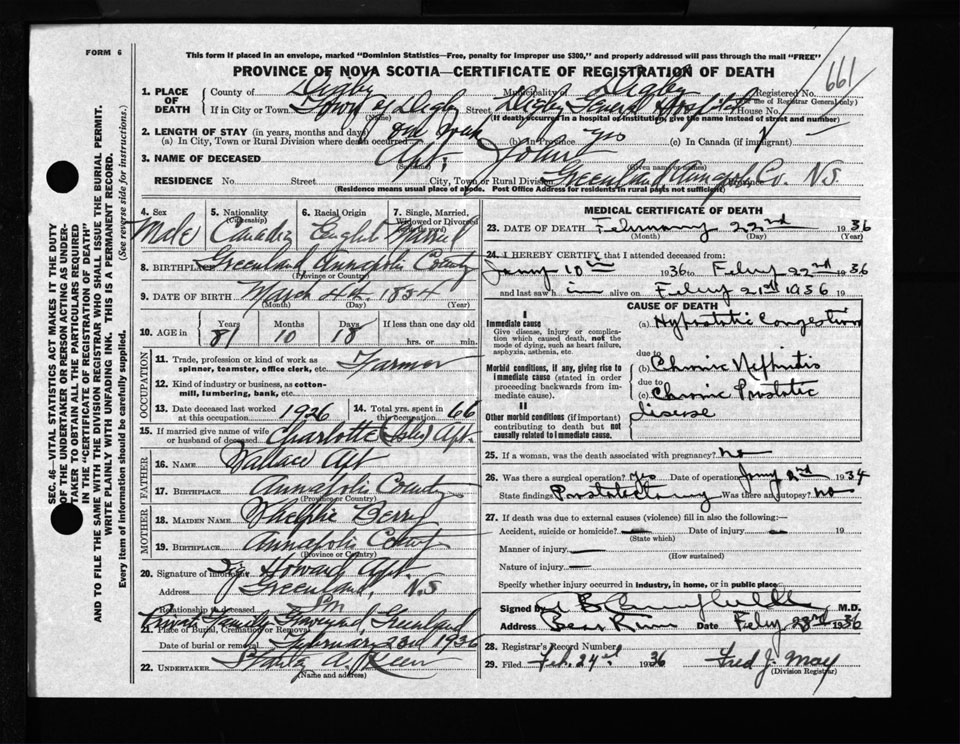 FORM 6
This form if placed in an envelope, marked "Dominion Statistics—Free, penalty for improper use $300," and properly addressed will pass through the mail "FREE"
PROVINCE OF NOVA SCOTIA—CERTIFICATE OF REGISTRATION OF DEATH
661
1. PLACE OF DEATH
County of Digby Municipality of Digby Registered No.
(For use of Registrar General only)
If in City or Town Town of Digby Street Digby General Hospital House No.
(Name) (If death occurred in a hospital or institution, give the name instead of street and number)
2. LENGTH OF STAY (in years, months and days)
(a) In City, Town or Rural Division where death occurred one week (b) In Province (c) In Canada (if immigrant)
3. NAME OF DECEASED Apt, John
(Surname) (Given name or names)
RESIDENCE No. Street City, Town or Rural Division Greenland Annapol. Co. N.S.
(Residence means usual place of abode. Post Office Address for residents in rural parts not sufficient)
SEC. 46—VITAL STATISTICS ACT MAKES IT THE DUTY
OF THE UNDERTAKER OR PERSON ACTING AS UNDER-
TAKER TO OBTAIN ALL THE PARTICULARS REQUIRED
IN THE "CERTIFICATE OF REGISTRATION OF DEATH"
AND TO FILE THE SAME WITH THE DIVISION REGISTRAR WHO SHALL ISSUE THE BURIAL PERMIT.
WRITE PLAINLY WITH UNFADING INK. THIS IS A PERMANENT RECORD.
Every item of information should be carefully supplied. (See reverse side for instructions.)
4. Sex
Male
5. Nationality
(Citizenship)
6. Racial Origin
English
7. Single, Married,
Widowed or Divorced
Married
8. BIRTHPLACE Greenland, Annapolis County
(Province or Country)
9. DATE OF BIRTH March 4th. 1854
(Month) (Day) (Year)
10. AGE in Years Months Days If less than one day old
81 10 18 hrs. or min.
OCCUPATION
11. Trade, profession or kind of work as
spinner, teamster, office clerk, etc. Farmer
12. Kind of industry or business, as cotton-
mill, lumbering, bank, etc.
13. Date deceased last worked
at this occupation 1926
14. Total yrs. spent in
this occupation 66
15. If married give name of wife
or husband of deceased Charlotte Apt.
FATHER
16. NAME Wallace Apt
17. BIRTHPLACE Annapolis County
(Province or Country)
MOTHER
18. MAIDEN NAME Berry
19. BIRTHPLACE Annapolis County
(Province or Country)
20. Signature of informant Howard Apt.
Address Greenland, N.S
Relationship to deceased Son
21. Place of Burial, Cremation or Removal
Private Family Graveyard, Greenland
Date of burial or removal February 23rd 1936
22. UNDERTAKER
(Name and address)
MEDICAL CERTIFICATE OF DEATH
23. DATE OF DEATH February 22nd 1936
(Month) (Day) (Year)
24. I HEREBY CERTIFY that I attended deceased from:
Jany 10th 1936 to Feby 22nd 1936
and last saw him alive on Feby 21st 1936 19
CAUSE OF DEATH
I
Immediate cause
Give disease, injury or complica-
tion which caused death, not the
mode of dying, such as heart failure,
asphyxia, asthenia, etc.
(a) Hypostatic Congestion
due to
Morbid conditions, if any, giving rise to
immediate cause (stated in order
proceeding backwards from im-
mediate cause).
(b) Chronic Nephritis
due to
(c) Chronic Prostatic
disease
II
Other morbid conditions (if important)
contributing to death but not
causally related to immediate cause.
25. If a woman, was the death associated with pregnancy? no
26. Was there a surgical operation? Yes Date of operation Jany 2nd 1934
State finding Prostatectomy Was there an autopsy? no
27. If death was due to external causes (violence) fill in also the following:—
Accident, suicide or homicide? Date of injury 19
(State which)
Manner of injury
(How sustained)
Nature of injury
Specify whether injury occurred in industry, in home, or in public place
Signed by M.D.
Address Bear River Date Feby 23rd 1936
28. Registrar's Record Number
29. Filed Feb. 24th 1936 Fred J. May
(Division Registrar)